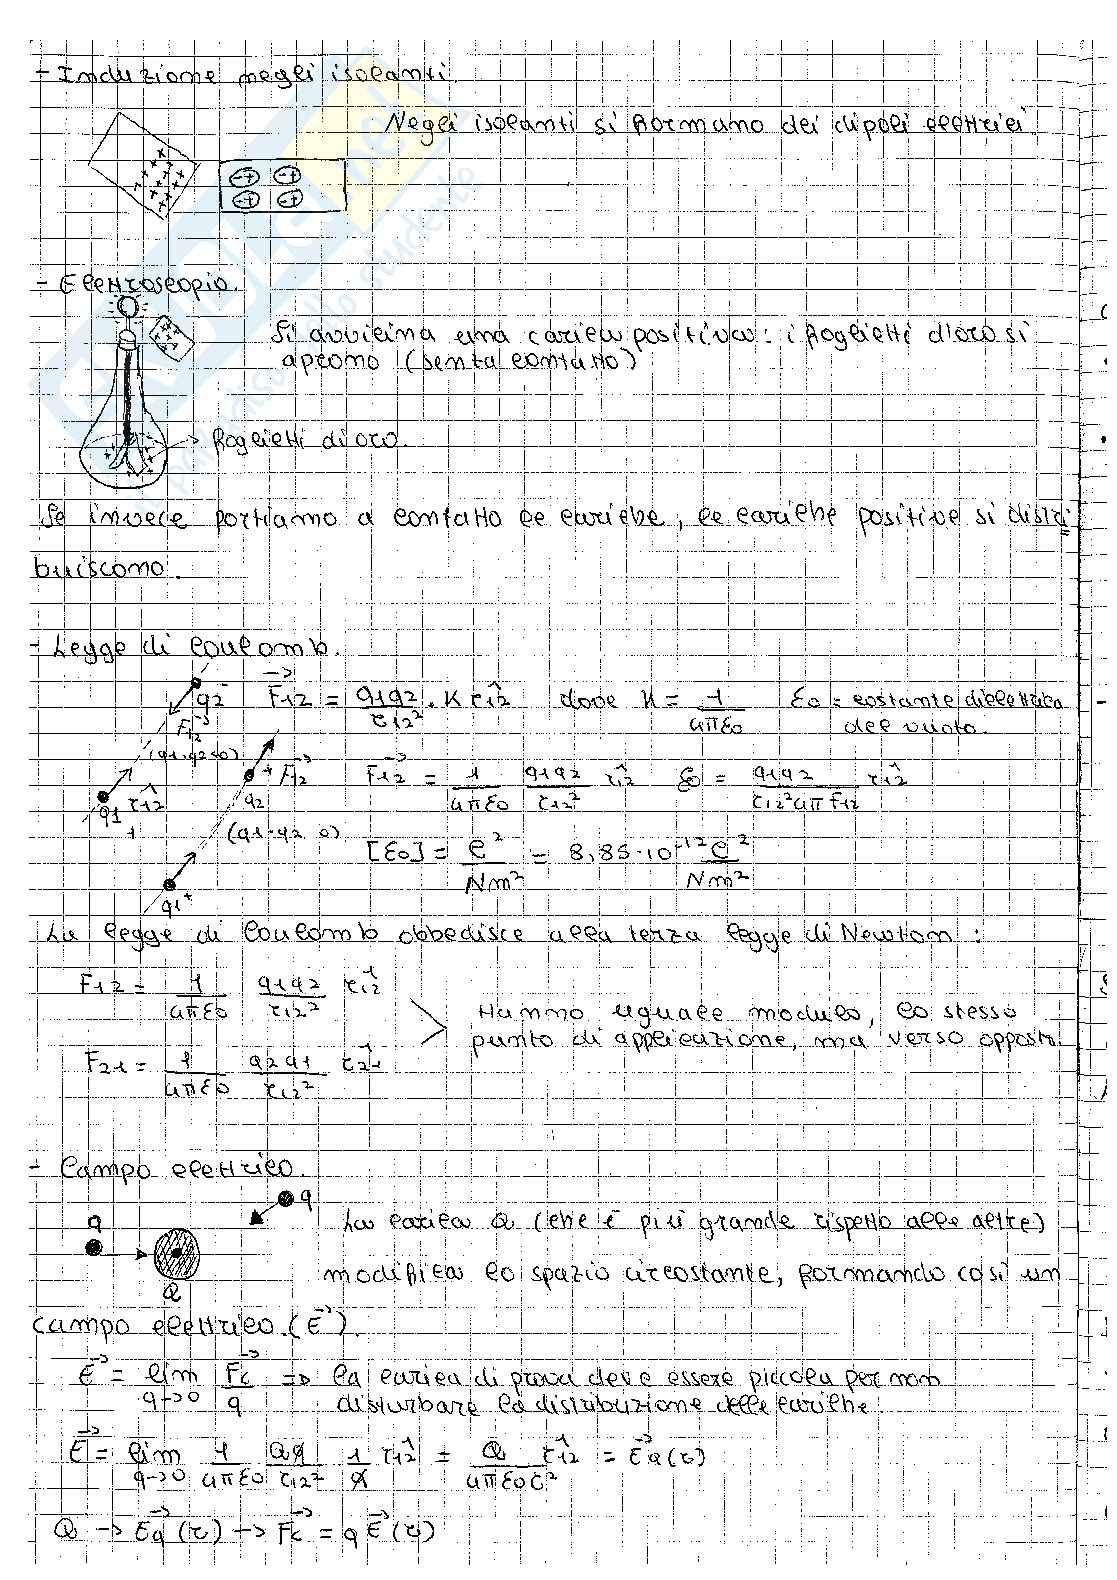 - Induzione negli isolanti
Negli isolanti si formano dei dipoli elettrici
- Elettroscopio.
Si avvicina una carica positiva: i foglietti d'oro si
aprono (senza contatto)
→ foglietti di oro.
Se invece portiamo a contatto le cariche, le cariche positive si distri
buiscono.
- Legge di Coulomb.
q2⁻ F⃗12 = q1q2/r12² · K r̂12 dove K = 1/4πε0 ε0 = costante dielettrica
del vuoto.
F⃗12
(q1·q2<0)
q1 r̂12
q2⁺ F⃗12 F⃗12 = 1/4πε0 q1q2/r12² r̂12 ε0 = q1q2/r12²4πF12 r̂12
(q1·q2 0)
q1⁺
[ε0] = C²/Nm² = 8,85·10⁻¹² C²/Nm²
La legge di Coulomb obbedisce alla terza legge di Newton:
F12 = 1/4πε0 q1q2/r12² r̂12
Hanno uguale modulo, lo stesso
punto di applicazione, ma verso opposto.
F21 = 1/4πε0 q2q1/r12² r̂21
- Campo elettrico.
q q Q
La carica Q (che è più grande rispetto alle altre)
modifica lo spazio circostante, formando così un
campo elettrico (E⃗).
E⃗ = lim q→0 F⃗c/q => la carica di prova deve essere piccola per non
disturbare la distribuzione delle cariche
E⃗ = lim q→0 1/4πε0 Qq/r12² 1/q r̂12 = Q/4πε0r² r̂12 = E⃗q(r)
Q → E⃗q(r) → F⃗c = q E⃗(r)